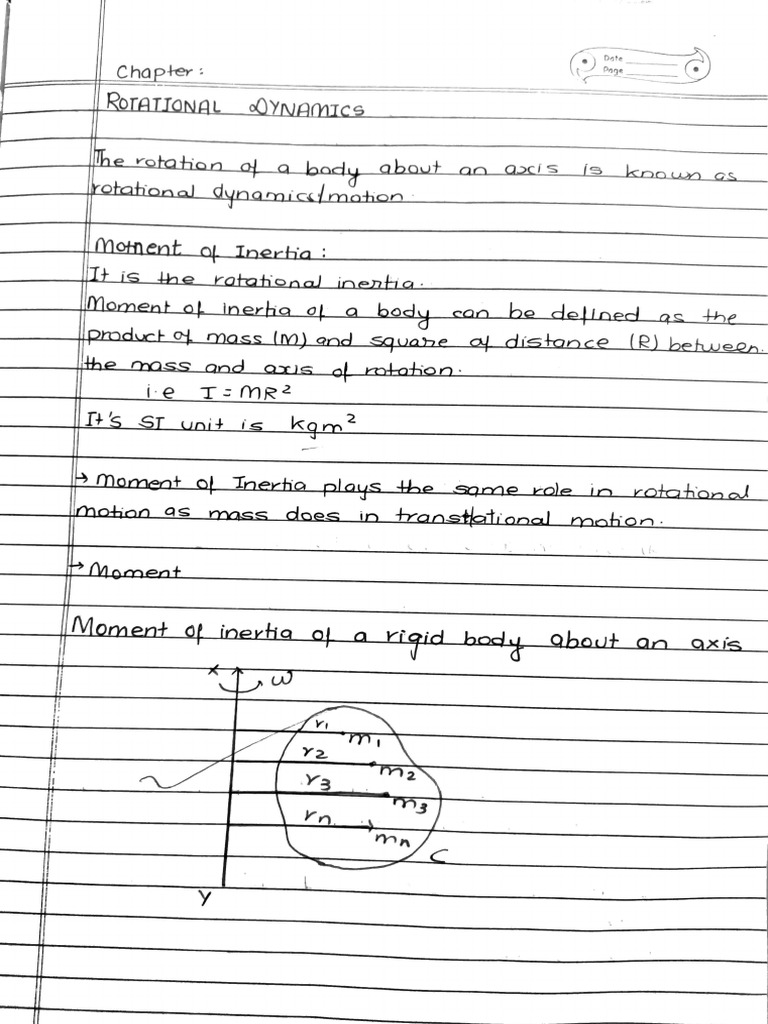 Date
Page
Chapter:
ROTATIONAL DYNAMICS
The rotation of a body about an axis is known as
rotational dynamics/motion.
Moment of Inertia:
It is the rotational inertia.
Moment of inertia of a body can be defined as the
product of mass (M) and square of distance (R) between
the mass and axis of rotation.
i.e I = MR²
It's SI unit is kgm²
→ Moment of Inertia plays the same role in rotational
motion as mass does in translational motion.
→ Moment
Moment of inertia of a rigid body about an axis
X ω
r₁ m₁
r₂ m₂
r₃ m₃
rₙ mₙ
C
Y